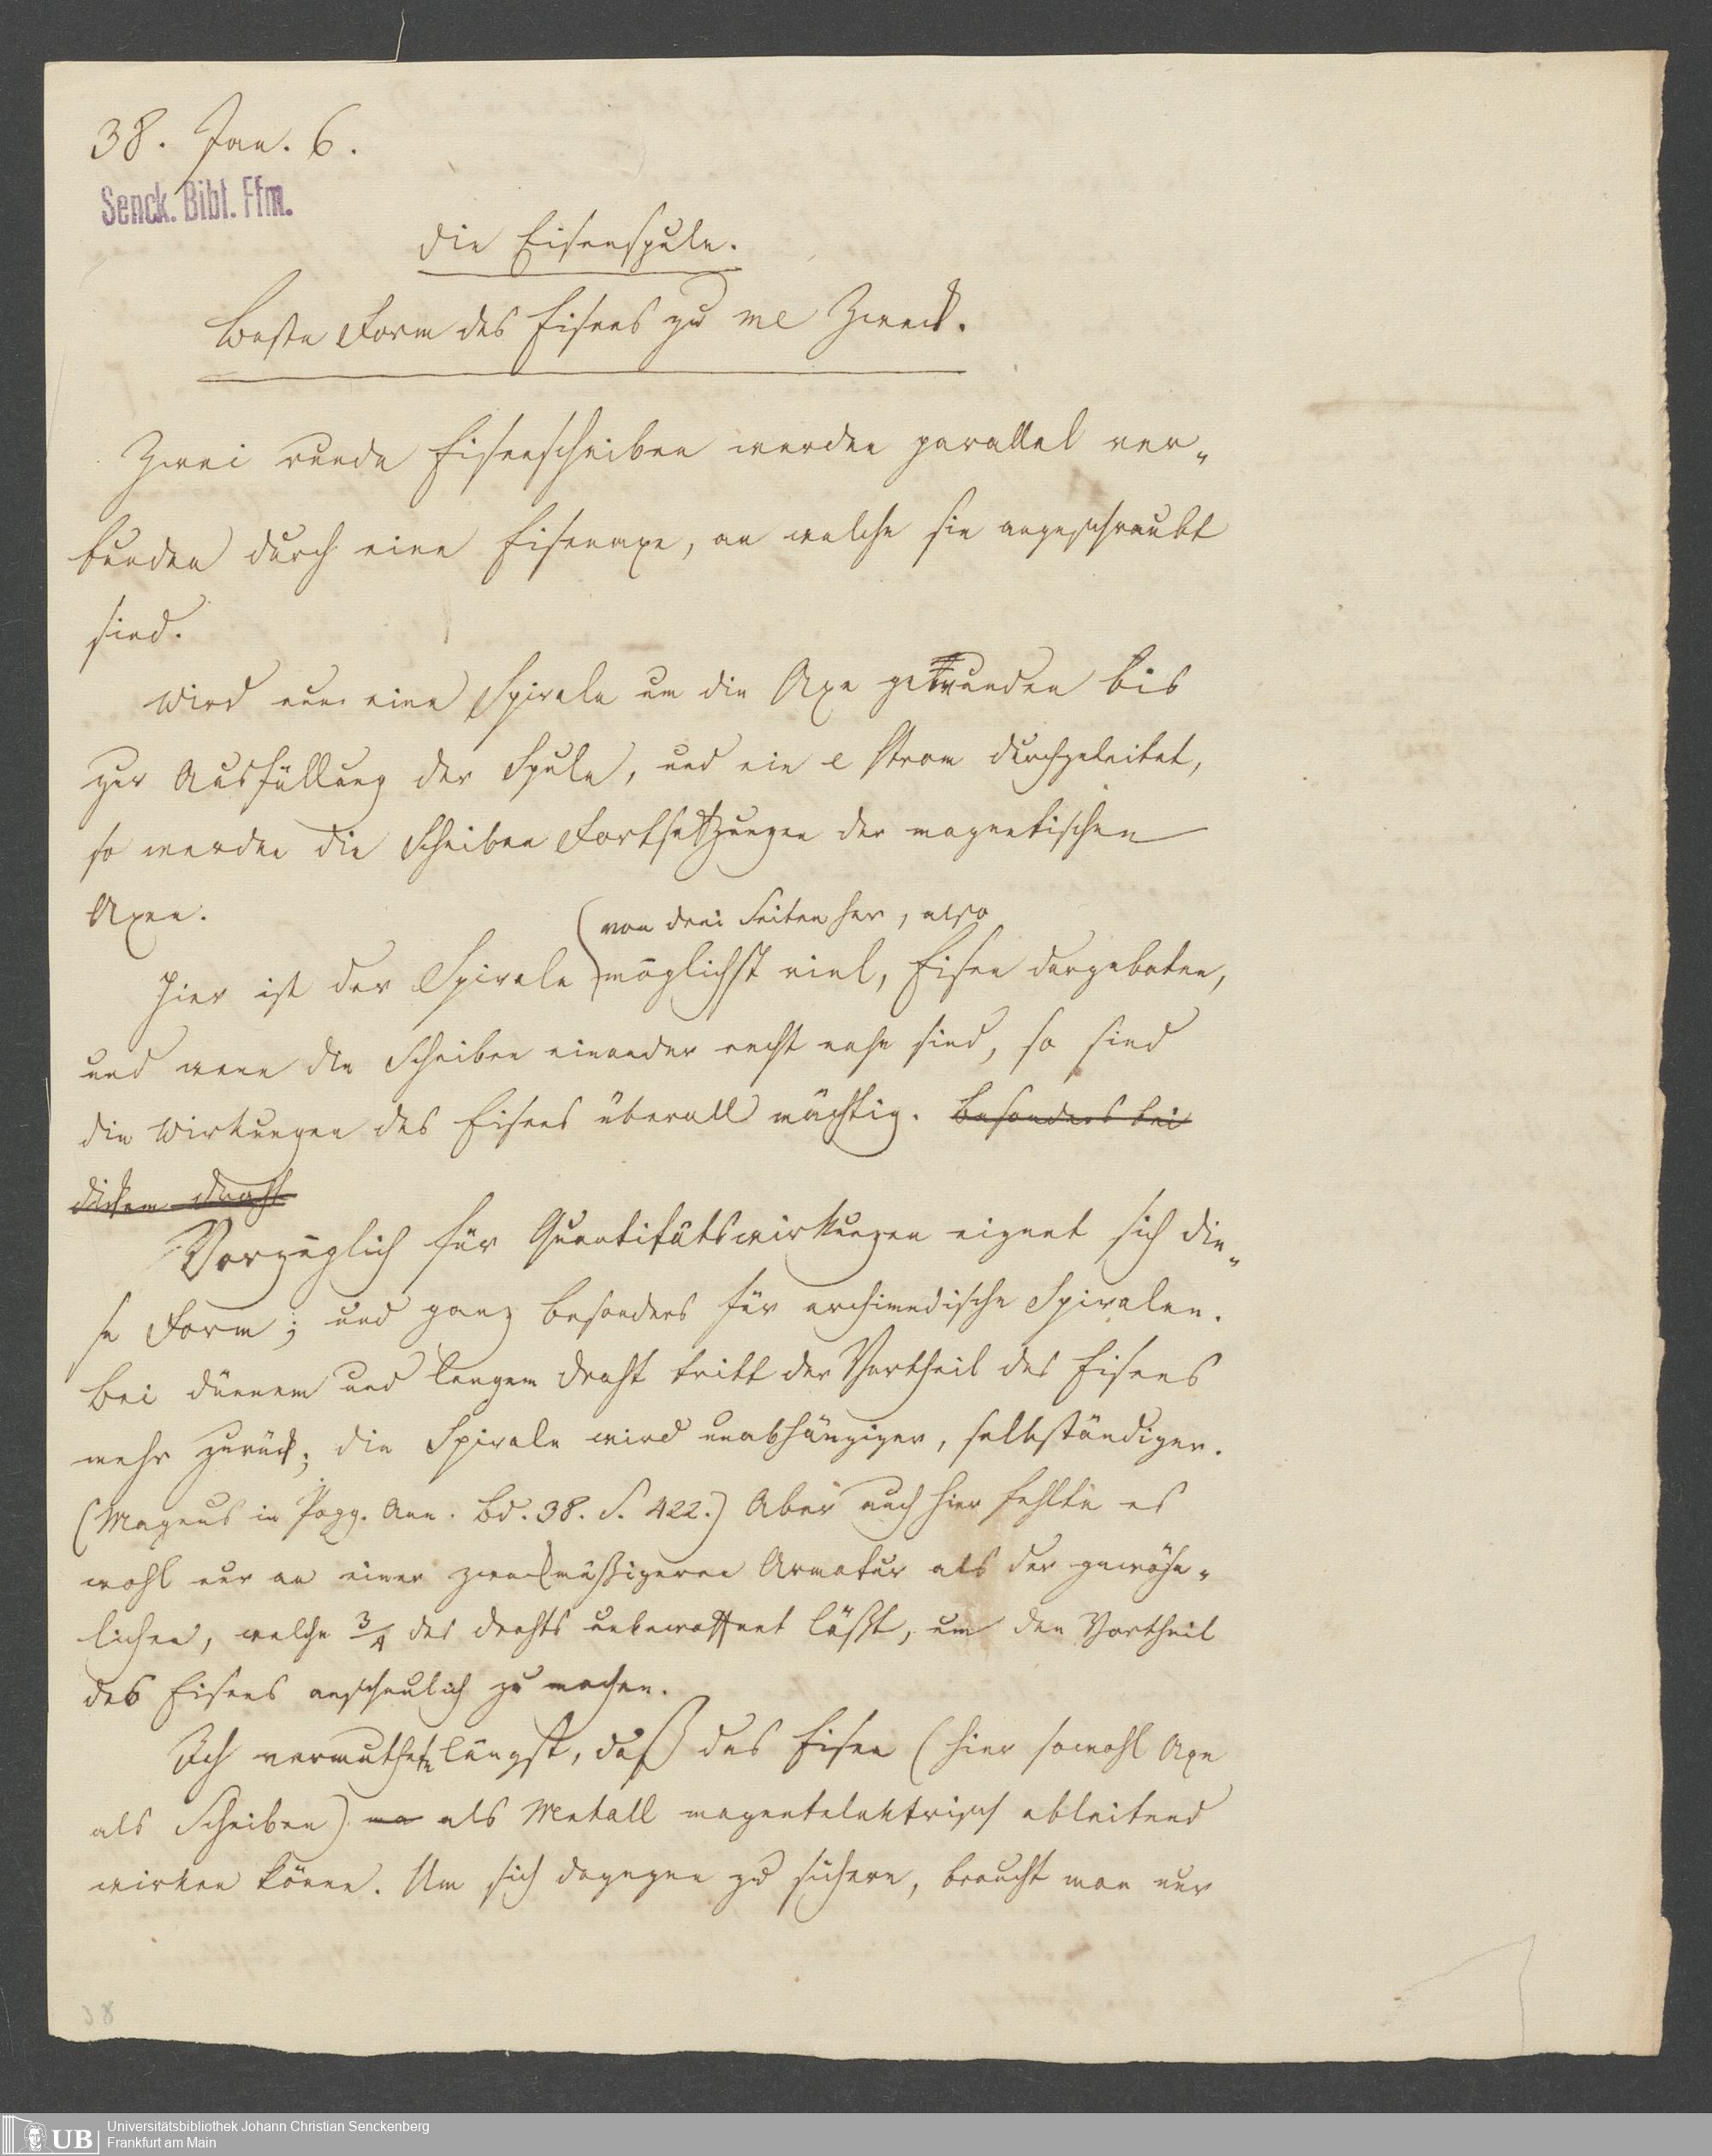 38. Jan. 6.
Senck. Bibl. Ffm.
Die Eisenspule.
Beste Form des Eisens zu me Zweck.
Zwei runde Eisenscheiben werden parallel ver„
bunden durch eine Eisenaxe, an welche sie angeschraubt
sind.
Wird nun eine Spirale um die Axe gewunden bis
zur Ausfüllung der Spule, und ein e Strom durchgeleitet,
so werden die Scheiben Fortsetzungen der magnetischen
Axen.
von drei Seiten her, also
Hier ist der Spirale möglichst viel, Eisen dargeboten,
und wenn die Scheiben einander recht nahe sind, so sind
die Wirkungen des Eisens überall mächtig. besonders bei
dickem Draht
Vorzüglich für Quantitätswirkungen eignet sich die„
se Form; und ganz besonders für archimedische Spiralen.
Bei dünnem und langem Draht tritt der Vortheil des Eisens
mehr zurück; die Spirale wird unabhängiger, selbständiger.
(Magnus in Pogg. Ann. Bd. 38. S. 422.) Aber auch hier fehlte es
wohl nur an einer zweckmäßigeren Armatur als der gewöhn„
lichen, welche 3/4 des Drahts unbewaffnet läßt, um den Vortheil
des Eisens anschaulich zu machen.
Ich vermuthete längst, daß das Eisen (hier sowohl Axe
als Scheiben) als Metall magnetelektrisch ableitend
wirken könne. Um sich dagegen zu sichern, braucht man nur
38
UB
Universitätsbibliothek Johann Christian Senckenberg
Frankfurt am Main